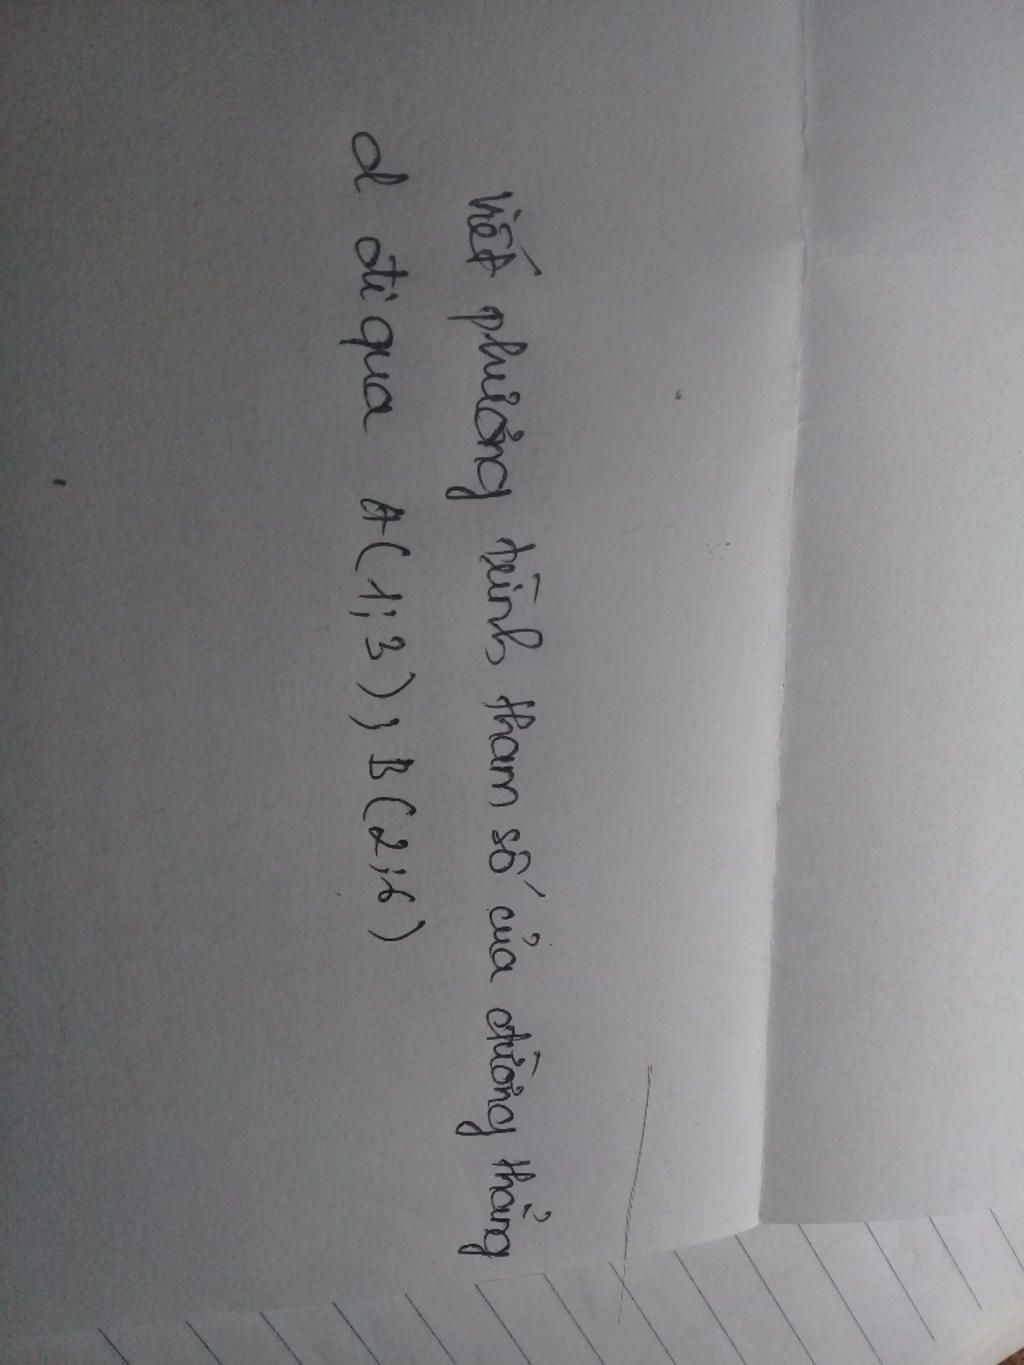 Viết phương trình tham số của đường thẳng
d đi qua A(1;3), B(2;6)